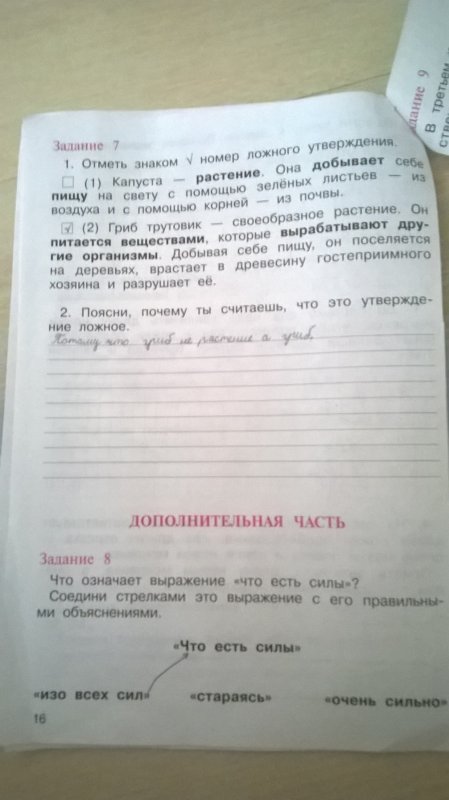 Задание 7
1. Отметь знаком √ номер ложного утверждения.
(1) Капуста — растение. Она добывает себе
пищу на свету с помощью зелёных листьев — из
воздуха и с помощью корней — из почвы.
√ (2) Гриб трутовик — своеобразное растение. Он
питается веществами, которые вырабатывают дру-
гие организмы. Добывая себе пищу, он поселяется
на деревьях, врастает в древесину гостеприимного
хозяина и разрушает её.
2. Поясни, почему ты считаешь, что это утвержде-
ние ложное.
Потому что гриб не растение а гриб.
ДОПОЛНИТЕЛЬНАЯ ЧАСТЬ
Задание 8
Что означает выражение «что есть силы»?
Соедини стрелками это выражение с его правильны-
ми объяснениями.
«Что есть силы»
«изо всех сил» «стараясь» «очень сильно»
16
адание 9
В третьем